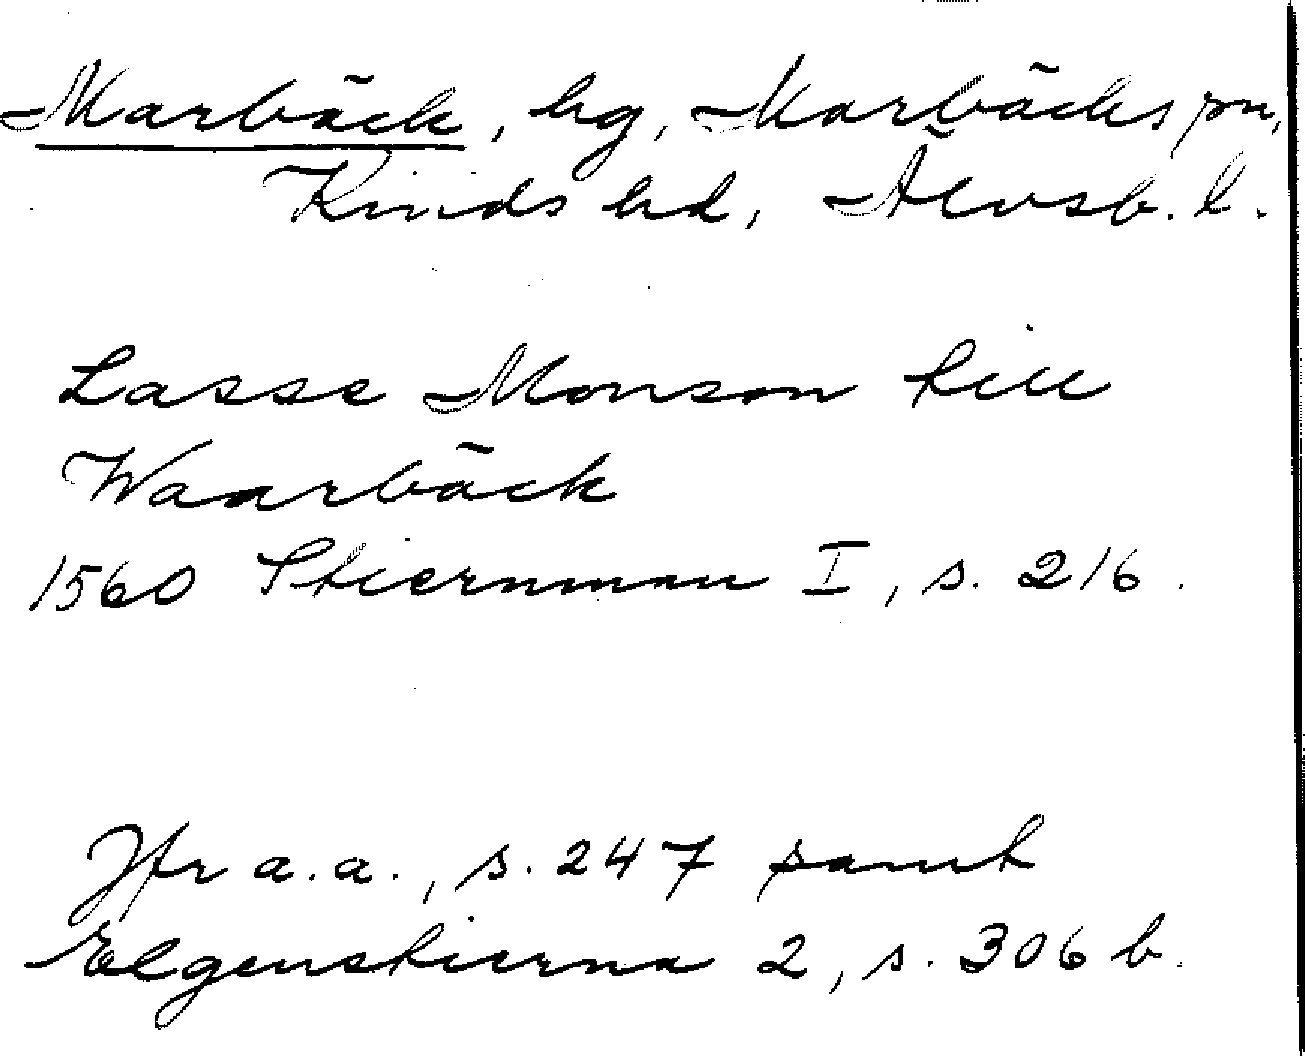 Marbäck, hg, Marbäcks sn,
Kinds hd, Älvsb. l.
Lasse Monson till
Waarbäck
1560 Stiernman I, s. 216.
Jfr a.a., s. 247 samt
Elgenstierna 2, s. 306 b.